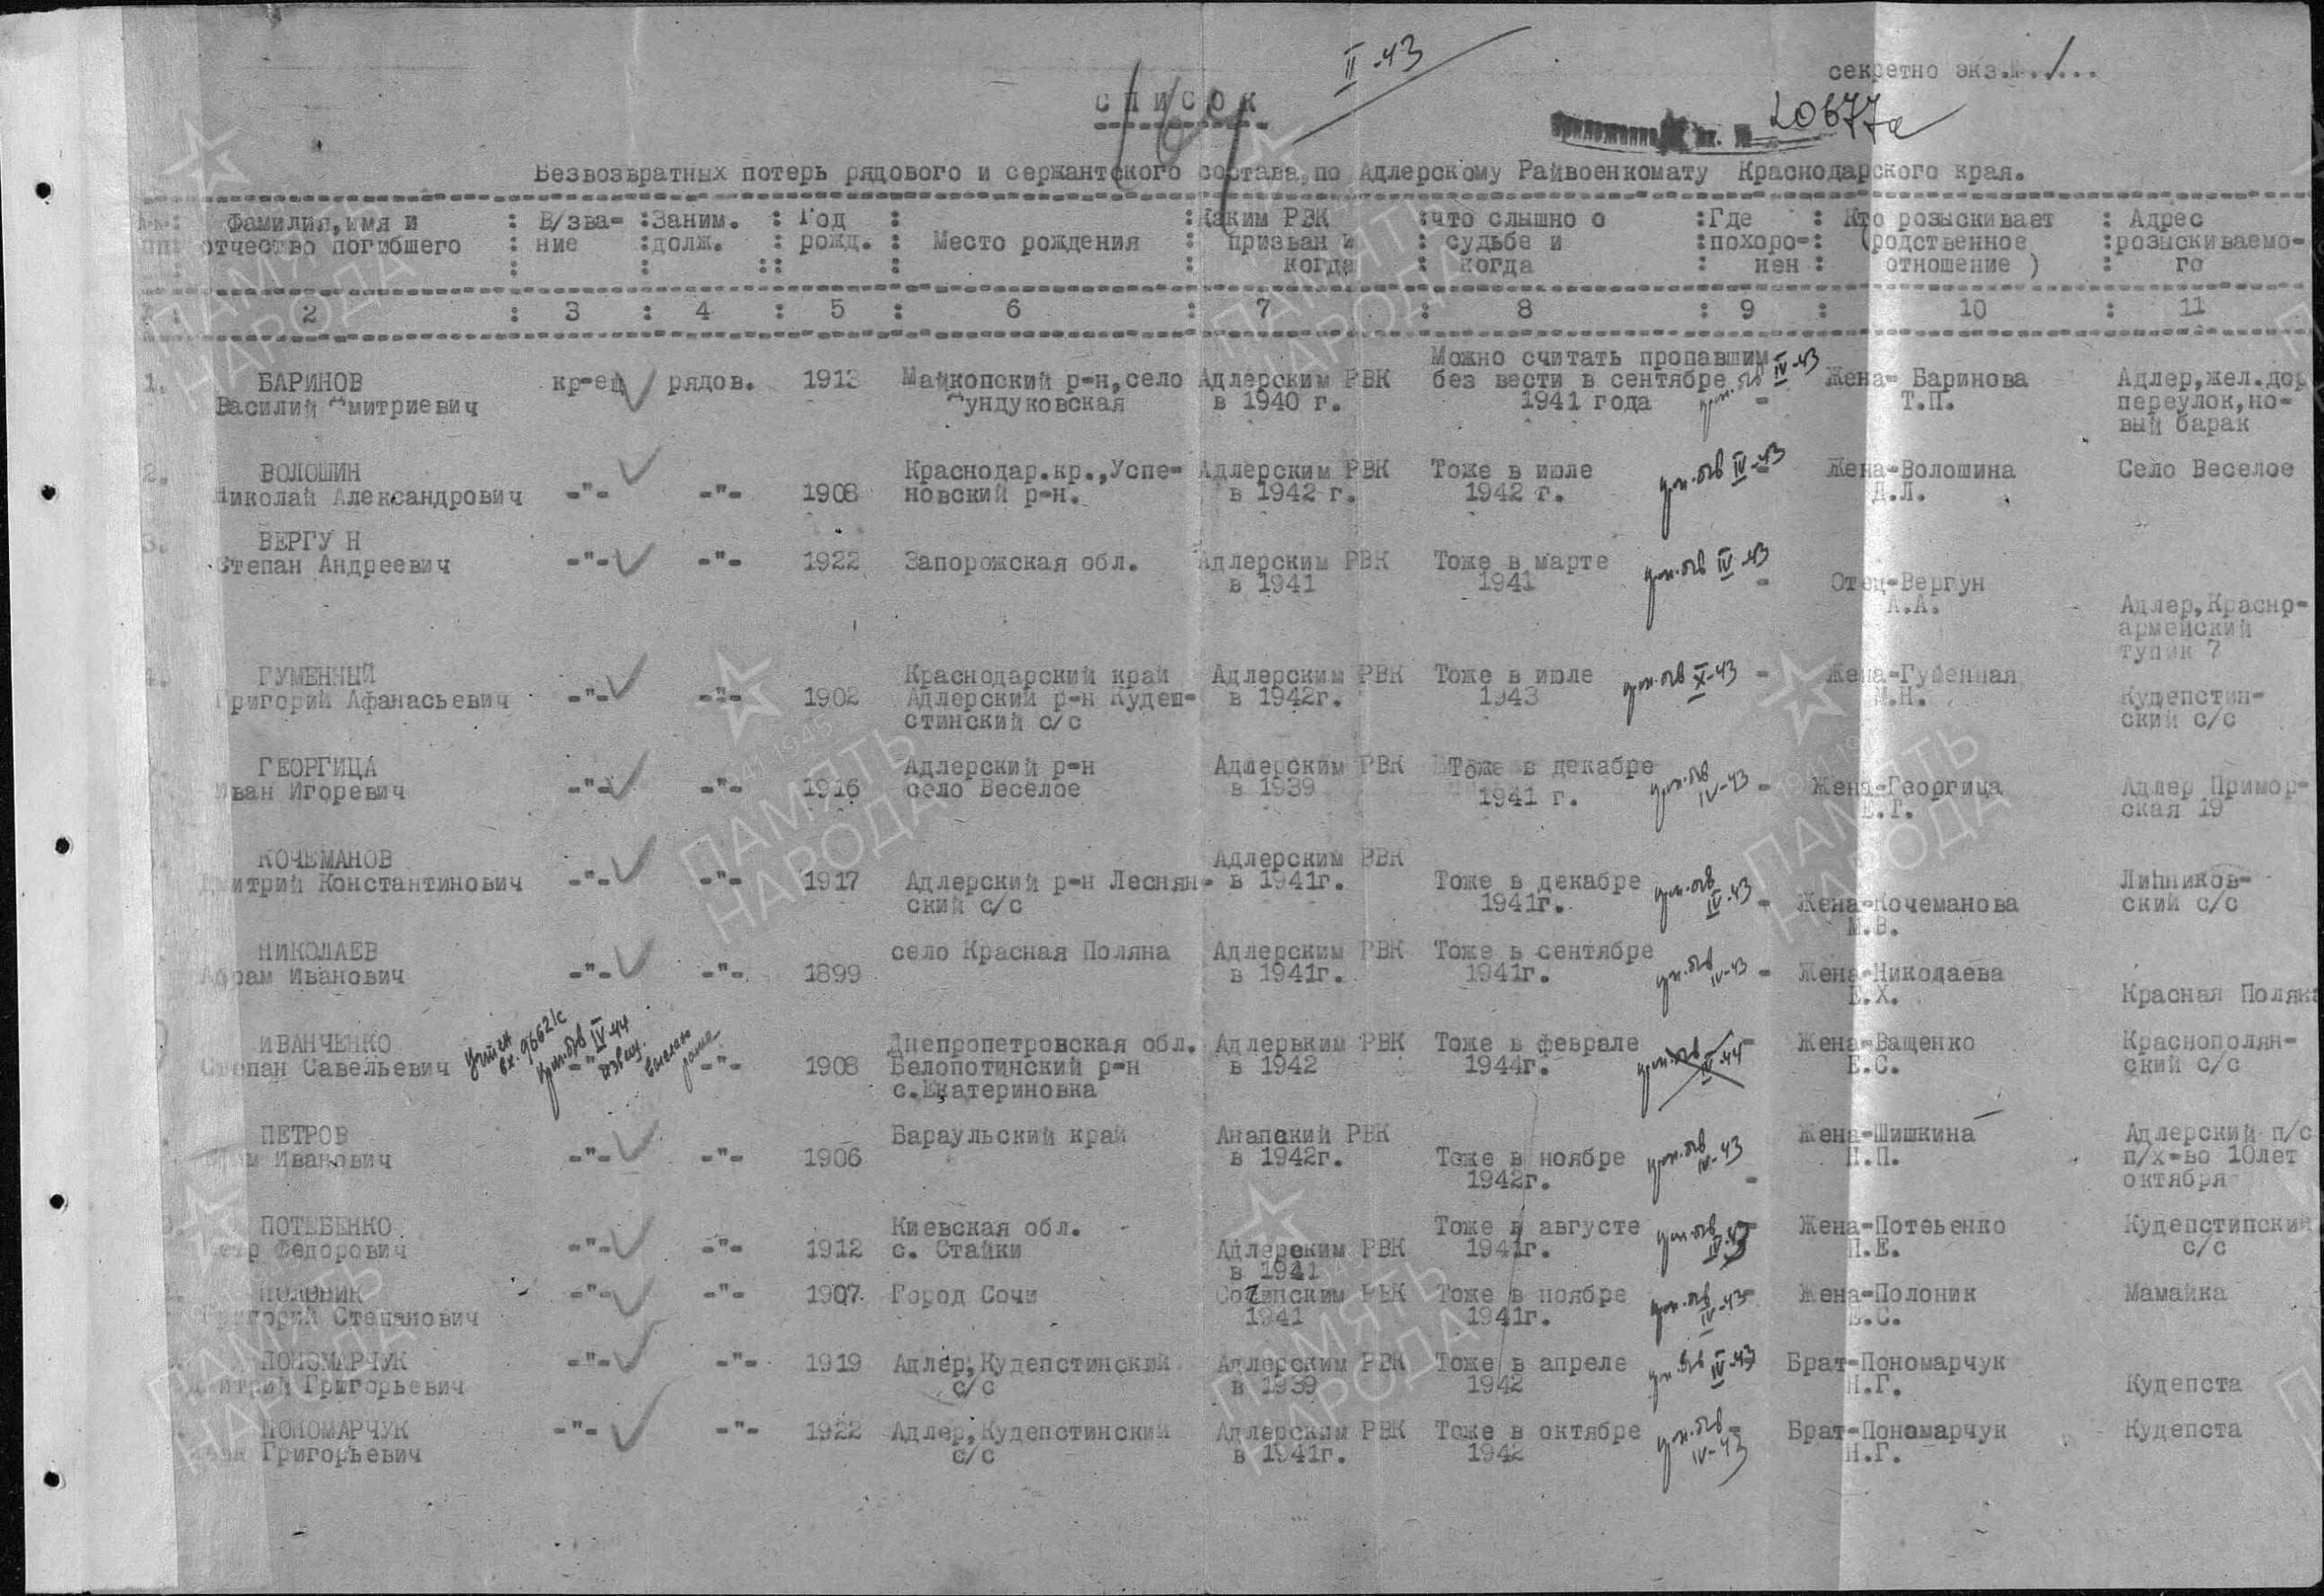 II-43
секретно экз.№.1...
список
20677с
Безвозвратных потерь рядового и сержантского состава, по Адлерскому Райвоенкомату Краснодарского края.
Фамилия,имя и : В/зва- :Заним. : Год : :Каким РВК :что слышно о :Где : Кто розыскивает : Адрес
отчество погибшего : ние :долж. : рожд. : Место рождения : призван и : судьбе и :похоро-: (родственное :розыскиваемо-
: : :: : : когда : когда : нен : отношение ) : го
2 : 3 : 4 : 5 : 6 : 7 : 8 : 9 : 10 : 11
Можно считать пропавшим IV-43
1. БАРИНОВ кр-ец рядов. 1913 Майкопский р-н,село Адлерским РВК без вести в сентябре Жена- Баринова Адлер,жел.дор
Василий Дмитриевич Дундуковская в 1940 г. 1941 года - Т.П. переулок,но-
вый барак
2. ВОЛОШИН Краснодар.кр.,Успе- Адлерским РВК Тоже в июле IV-43 Жена-Волошина Село Веселое
Николай Александрович -"- -"- 1908 новский р-н. в 1942 г. 1942 г. Д.Л.
3. ВЕРГУ Н
Степан Андреевич -"- -"- 1922 Запорожская обл. Адлерским РВК Тоже в марте IV-43
в 1941 1941 - Отец-Вергун
А.А. Адлер,Красно-
армейский
тупик 7
4. ГУМЕННЫЙ Краснодарский край Адлерским РВК Тоже в июле X-43 - Жена-Гуменная
Григорий Афанасьевич -"- -"- 1902 Адлерский р-н Кудеп- в 1942г. 1943 М.Н. Кудепстин-
стинский с/с ский с/с
ГЕОРГИЦА Адлерский р-н Адлерским РВК Тоже в декабре
Иван Игоревич -"- -"- 1916 село Веселое в 1939 1941 г. IV-43 - Жена-Георгица Адлер Примор-
Е.Т. ская 19
КОЧЕМАНОВ Адлерским РВК
Дмитрий Константинович -"- -"- 1917 Адлерский р-н Леснян- в 1941г. Тоже в декабре Липников-
ский с/с 1941г. IV-43 - Жена-Кочеманова ский с/с
М.В.
НИКОЛАЕВ село Красная Поляна Адлерским РВК Тоже в сентябре
Афрам Иванович -"- -"- 1899 в 1941г. 1941г. IV-43 - Жена-Николаева
Е.Х. Красная Поляна
вх. 96621с
IV-44
ИВАНЧЕНКО Днепропетровская обл. Адлерьким РВК Тоже в феврале - Жена-Ващенко Краснополян-
Степан Савельевич -"- -"- 1908 Белопотинский р-н в 1942 1944г. IV-44 Е.С. ский с/с
с.Екатериновка
ПЕТРОВ Бараульский край Анапский РВК Жена-Шишкина Адлерский п/с
Иванович -"- -"- 1906 в 1942г. Тоже в ноябре IV-43 Н.П. п/х-во 10лет
1942г. - октября
ПОТЕБЕНКО Киевская обл. Тоже в августе - Жена-Потеьенко Кудепстипский
Федорович -"- -"- 1912 с. Стайки Адлерским РВК 1941г. IV-43 П.Е. с/с
в 1941
ПОЛОНИК -"- -"- 1907 Город Сочи Сочинским РВК Тоже в ноябре - Жена-Полоник Мамайка
Григорий Степанович 1941 1941г. IV-43 Е.С.
ПОНОМАРЧУК -"- -"- 1919 Адлер,Кудепстинский Адлерским РВК Тоже в апреле IV-43 Брат-Пономарчук
Дмитрий Григорьевич с/с в 1939 1942 Н.Г. Кудепста
ПОНОМАРЧУК -"- -"- 1922 Адлер,Кудепстинский Адлерским РВК Тоже в октябре - Брат-Пономарчук Кудепста
Григорьевич с/с в 1941г. 1942 IV-43 Н.Г.
ПАМЯТЬ
НАРОДА